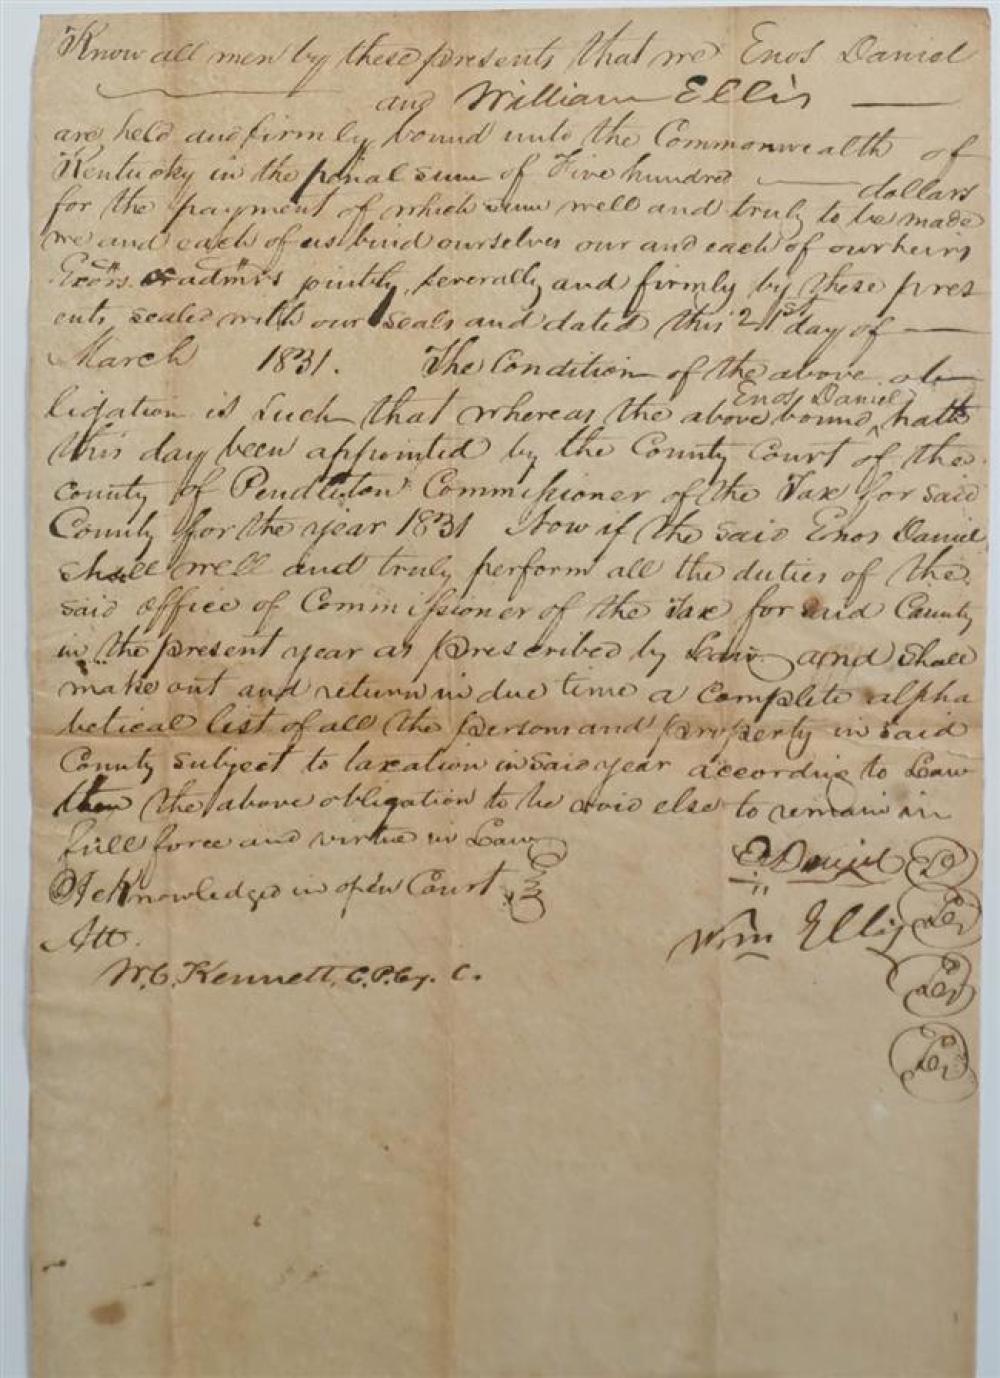 Know all men by these presents that we Enos Daniel
and William Ellis
are held and firmly bound unto the Commonwealth of
Kentucky in the penal sum of Five hundred dollars
for the payment of which sum well and truly to be made
we and each of us bind ourselves our and each of our heirs
Exors. or admrs jointly, severally and firmly by these pres
ents sealed with our seals and dated this 21st day of
March 1831. The Condition of the above ob
ligation is such that whereas the above bound Enos Daniel hath
this day been appointed by the County Court of the
county of Pendleton Commissioner of the Tax for said
County for the year 1831 Now if the said Enos Daniel
shall well and truly perform all the duties of the
said office of Commissioner of the Tax for said County
in the present year as prescribed by Law and shall
make out and return in due time a complete alpha
betical list of all the persons and property in said
County subject to taxation in said year according to Law
then the above obligation to be void else to remain in
full force and virtue in Law
Acknowledged in open Court
E. Daniel
Wm Ellis
Att.
W.C. Kennett, C.P.Cy. C.